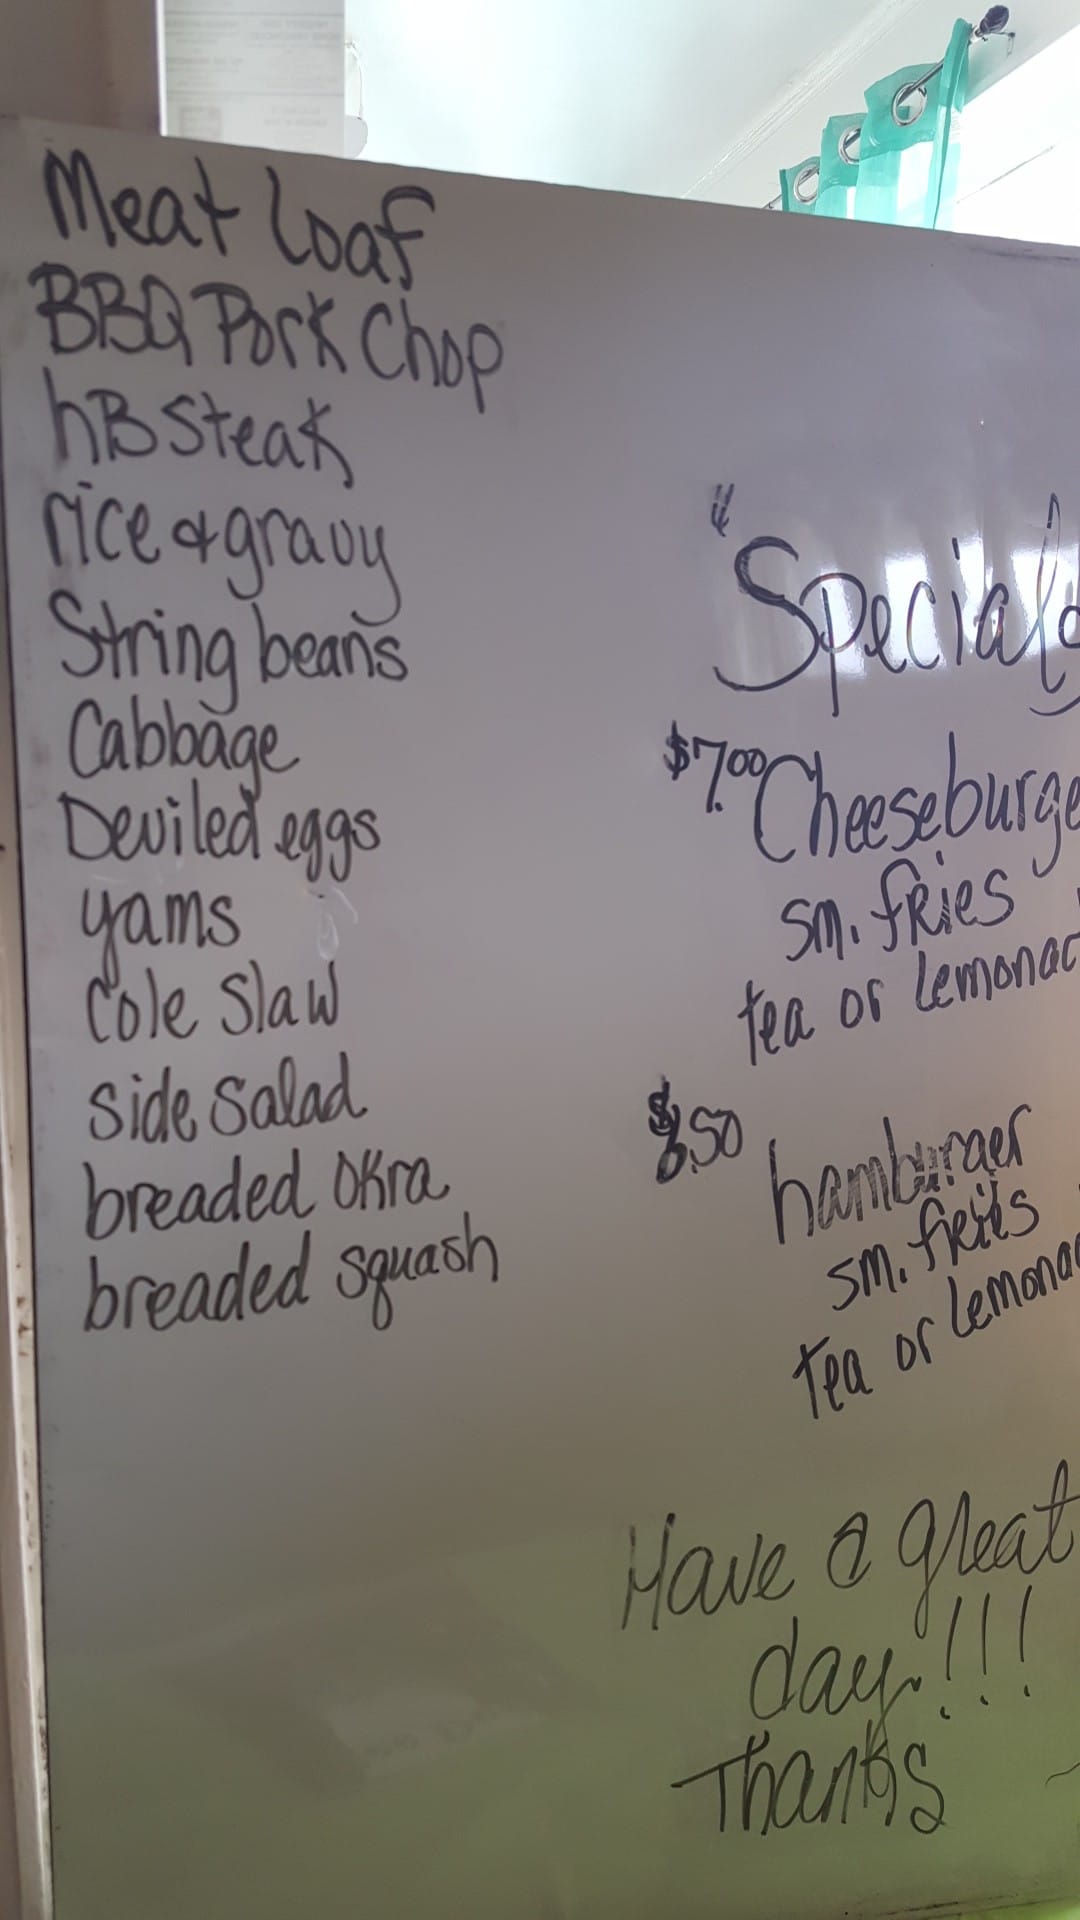 Meat Loaf
BBQ Pork Chop
hB Steak
rice & gravy
String beans
Cabbage
Deviled eggs
yams
Cole Slaw
side salad
breaded okra
breaded squash
"Specials
$7.00 Cheeseburge
sm. fries
tea or Lemonad
.50 hamburger
sm. fries
tea or Lemona
Have a great
day!!!
Thanks